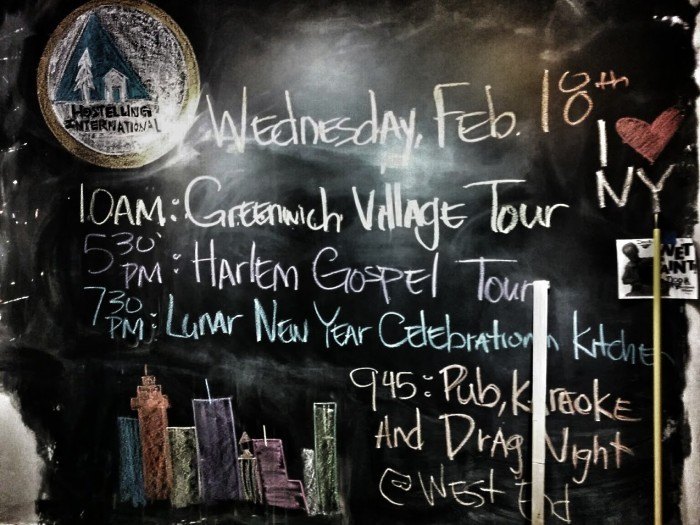 HOSTELLING
INTERNATIONAL
Wednesday, Feb. 18th
I ♥
NY
10AM: Greenwich Village Tour
530 PM: Harlem Gospel Tour
730 PM: Lunar New Year Celebration in Kitchen
WET
PAINT
945: Pub, Karaoke
And Drag Night
@ West End